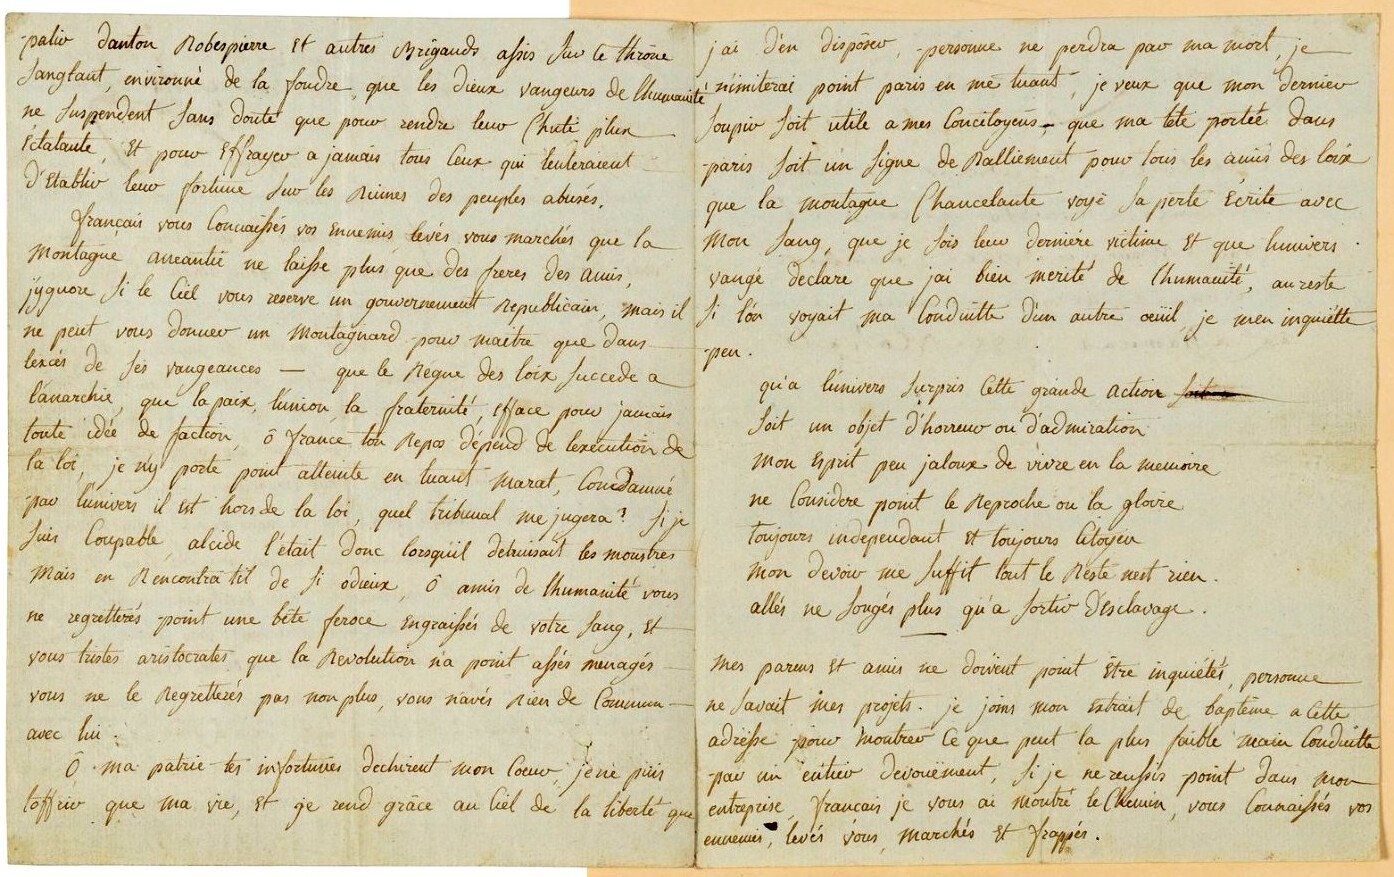 -palir danton Robespierre Et autres Brigands assis sur le thrône
sanglant, environné de la foudre, que les dieux vangeurs de lhumanité
ne suspendent sans doute que pour rendre leur Chute plus
Eclatante, Et pour Effrayer a jamais tous Ceux qui tenteraient
d'Etablir leur fortune sur les Ruines des peuples abusés.
français vous Connaissés vos Ennemis, levés vous marchés que la
Montagne aneantie ne laisse plus que des freres des amis,
j'ygnore si le Ciel vous reserve un gouvernement Republicain, mais il
ne peut vous donner un Montagnard pour maitre que dans
lexcés de ses vangeances — que le Regne des loix succede a
l'anarchie, que la paix, l'union la fraternité, Efface pour jamais
toute idée de faction, ô france ton Repos dépend de lexécution de
la loi, je n'y porte point atteinte en tuant marat, Condamné
par l'univers il Est hors de la loi, quel tribunal me jugera? si je
suis Coupable, alcide l'était donc lorsqu'il detruisait les monstres
Mais en Rencontra til de si odieux, Ô amis de lhumanité vous
ne regretterés point une bête feroce engraissés de votre sang, Et
vous tristes aristocrates que la Revolution n'a point assés menagés
vous ne le Regretterés pas non plus, vous n'avés Rien de Commun
avec lui.
Ô ma patrie tes infortunes dechirent mon Coeur, je ne puis
t'offrir que ma vie, Et je rend grâce au Ciel de la liberté que
j'ai d'en disposer, personne ne perdra par ma mort, je
n'imiterai point paris en me tuant, je veux que mon dernier
soupir soit utile a mes Concitoyens, que ma tête portée dans
paris soit un signe de Ralliement pour tous les amis des loix
que la montagne Chancelante voye sa perte Ecrite avec
Mon sang, que je sois leur derniére victime Et que lunivers
vangé declare que jai bien merité de lhumanité, au reste
si l'on voyait ma Conduitte d'un autre oeuil, je m'en inquiétte
peu.
qu'a l'univers surpris Cette grande action
soit un objet d'horreur ou d'admiration
Mon Esprit peu jaloux de vivre en la memoire
ne Considere point le Reproche ou la gloire
toujours independant Et toujours Citoyen
Mon devoir me suffit tout le Reste nest rien.
allés ne songés plus qu'a sortir d'Esclavage.
Mes parens Et amis ne doivent point Être inquiétés, personne
ne savait Mes projets. je joins mon Extrait de baptême a Cette
adresse pour montrer Ce que peut la plus faible main Conduitte
par un entier devouëment, si je ne reussis point dans mon
entreprise, français je vous ai montré le Chemin, vous Connaissés vos
ennemis, levés vous, marchés Et frappés.